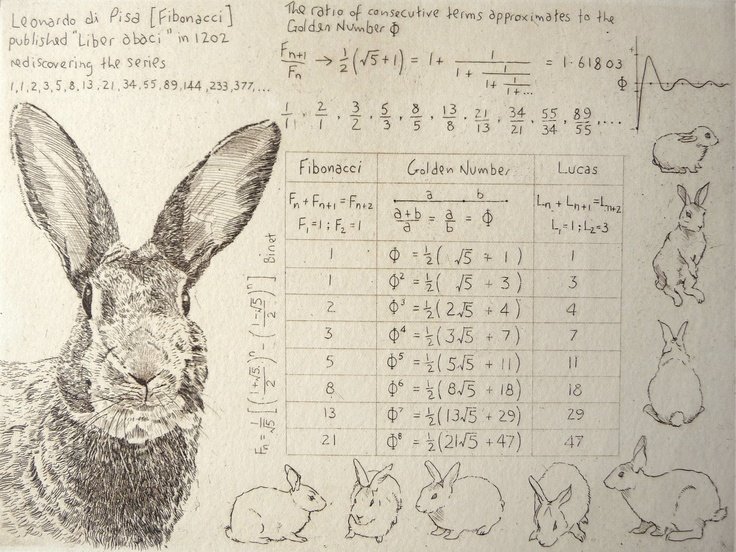 Leonardo di Pisa [Fibonacci]
published "Liber abaci" in 1202
rediscovering the series
1,1,2,3,5,8,13,21,34,55,89,144,233,377,...
The ratio of consecutive terms approximates to the
Golden Number Φ
Fn+1/Fn → 1/2(√5+1) = 1+ 1/(1+ 1/(1+ 1/(1+ 1/(1+...)))) = 1·61803
Φ
+
-
1/1, 2/1, 3/2, 5/3, 8/5, 13/8, 21/13, 34/21, 55/34, 89/55, ...
Fibonacci Golden Number Lucas
Fn + Fn+1 = Fn+2 a b Ln + Ln+1 = Ln+2
F1=1; F2=1 (a+b)/a = a/b = Φ L1=1; L2=3
1 Φ = 1/2( √5 + 1) 1
1 Φ² = 1/2( √5 + 3) 3
2 Φ³ = 1/2(2√5 + 4) 4
3 Φ⁴ = 1/2(3√5 + 7) 7
5 Φ⁵ = 1/2(5√5 + 11) 11
8 Φ⁶ = 1/2(8√5 + 18) 18
13 Φ⁷ = 1/2(13√5 + 29) 29
21 Φ⁸ = 1/2(21√5 + 47) 47
Fn = 1/√5 [((1+√5)/2)ⁿ - ((1-√5)/2)ⁿ] Binet